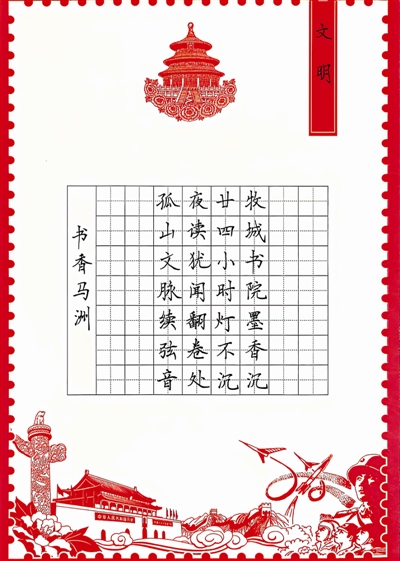 文明
牧城书院墨香沉
廿四小时灯不沉
夜读犹闻翻卷处
孤山文脉续弦音
书香马洲